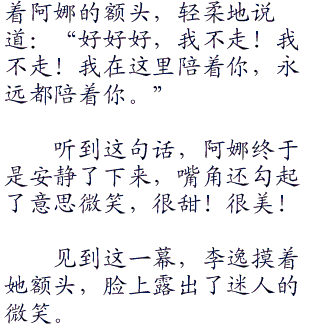 着阿娜的额头，轻柔地说
道：“好好好，我不走！我
不走！我在这里陪着你，永
远都陪着你。”
听到这句话，阿娜终于
是安静了下来，嘴角还勾起
了意思微笑，很甜！很美！
见到这一幕，李逸摸着
她额头，脸上露出了迷人的
微笑。